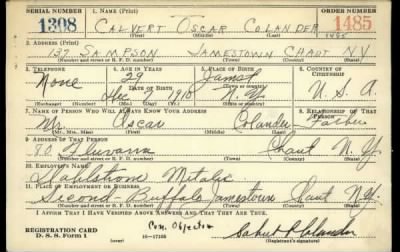 SERIAL NUMBER 1. NAME (Print) ORDER NUMBER
1308 CALVERT OSCAR COLANDER 1485
(First) (Middle) (Last)
2. ADDRESS (Print)
137 SAMPSON JAMESTOWN CHAUT N.Y.
(Number and street or R. F. D. number) (Town) (County) (State)
3. TELEPHONE 4. AGE IN YEARS 5. PLACE OF BIRTH 6. COUNTRY OF CITIZENSHIP
None 29 Jamst
DATE OF BIRTH (Town or county)
Dec 7 1910 N.Y. U.S.A.
(Exchange) (Number) (Mo.) (Day) (Yr.) (State or country)
7. NAME OF PERSON WHO WILL ALWAYS KNOW YOUR ADDRESS 8. RELATIONSHIP OF THAT PERSON
Mr. Oscar Colander Father
(Mr., Mrs., Miss) (First) (Middle) (Last)
9. ADDRESS OF THAT PERSON
R.D. Fluvanna Chaut N.Y.
(Number and street or R. F. D. number) (Town) (County) (State)
10. EMPLOYER'S NAME
Dahlstrom Metalic
11. PLACE OF EMPLOYMENT OR BUSINESS
Second Buffalo Jamestown Chaut N.Y.
(Number and street or R. F. D. number) (Town) (County) (State)
I AFFIRM THAT I HAVE VERIFIED ABOVE ANSWERS AND THAT THEY ARE TRUE.
Con. Objector
REGISTRATION CARD
D. S. S. Form 1 16—17105 (Registrant's signature)